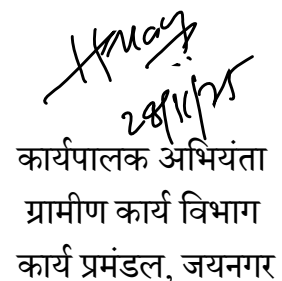 28/11/25
कार्यपालक अभियंता
ग्रामीण कार्य विभाग
कार्य प्रमंडल, जयनगर